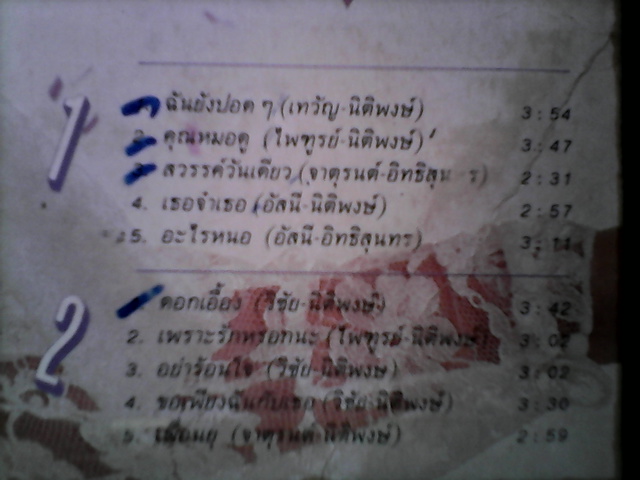 1
1. ฉันยังปอด ๆ (เทวัญ-นิติพงษ์) 3:54
2. คุณหมอดู (ไพฑูรย์-นิติพงษ์) 3:47
3. สวรรค์วันเดียว (จาตุรนต์-อิทธิสุนทร) 2:31
4. เธอจ๋าเธอ (อัสนี-นิติพงษ์) 2:57
5. อะไรหนอ (อัสนี-อิทธิสุนทร) 3:11
2
1. ดอกเอื้อง (วิชัย-นิติพงษ์) 3:42
2. เพราะรักหรอกนะ (ไพฑูรย์-นิติพงษ์)
3. อย่าร้อนใจ (วิชัย-นิติพงษ์) 3:02
4. ขอเพียงฉันกับเธอ (วิชัย-นิติพงษ์) 3:30
5. (จาตุรนต์-นิติพงษ์) 2:59